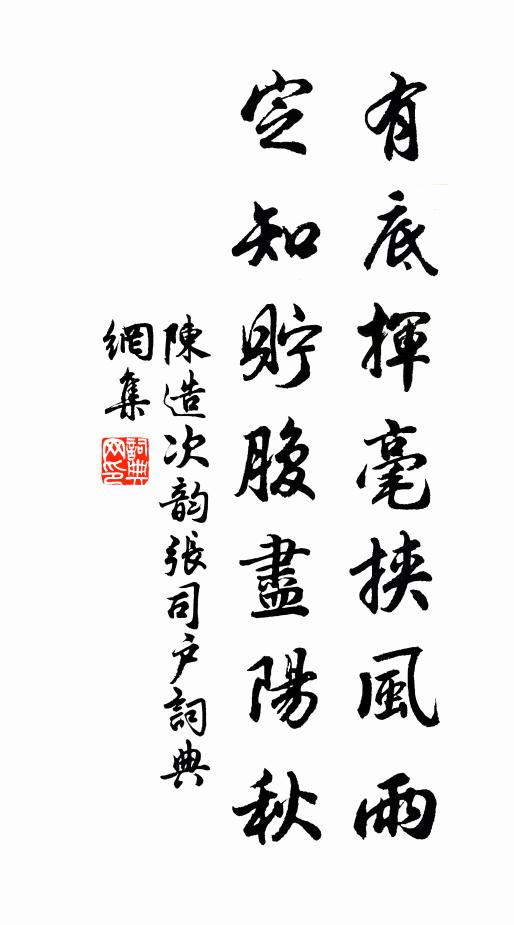 有底揮毫挾風雨
定知貯腹盡陽秋
陳造次韵張司户詞典
網集
詞典網印